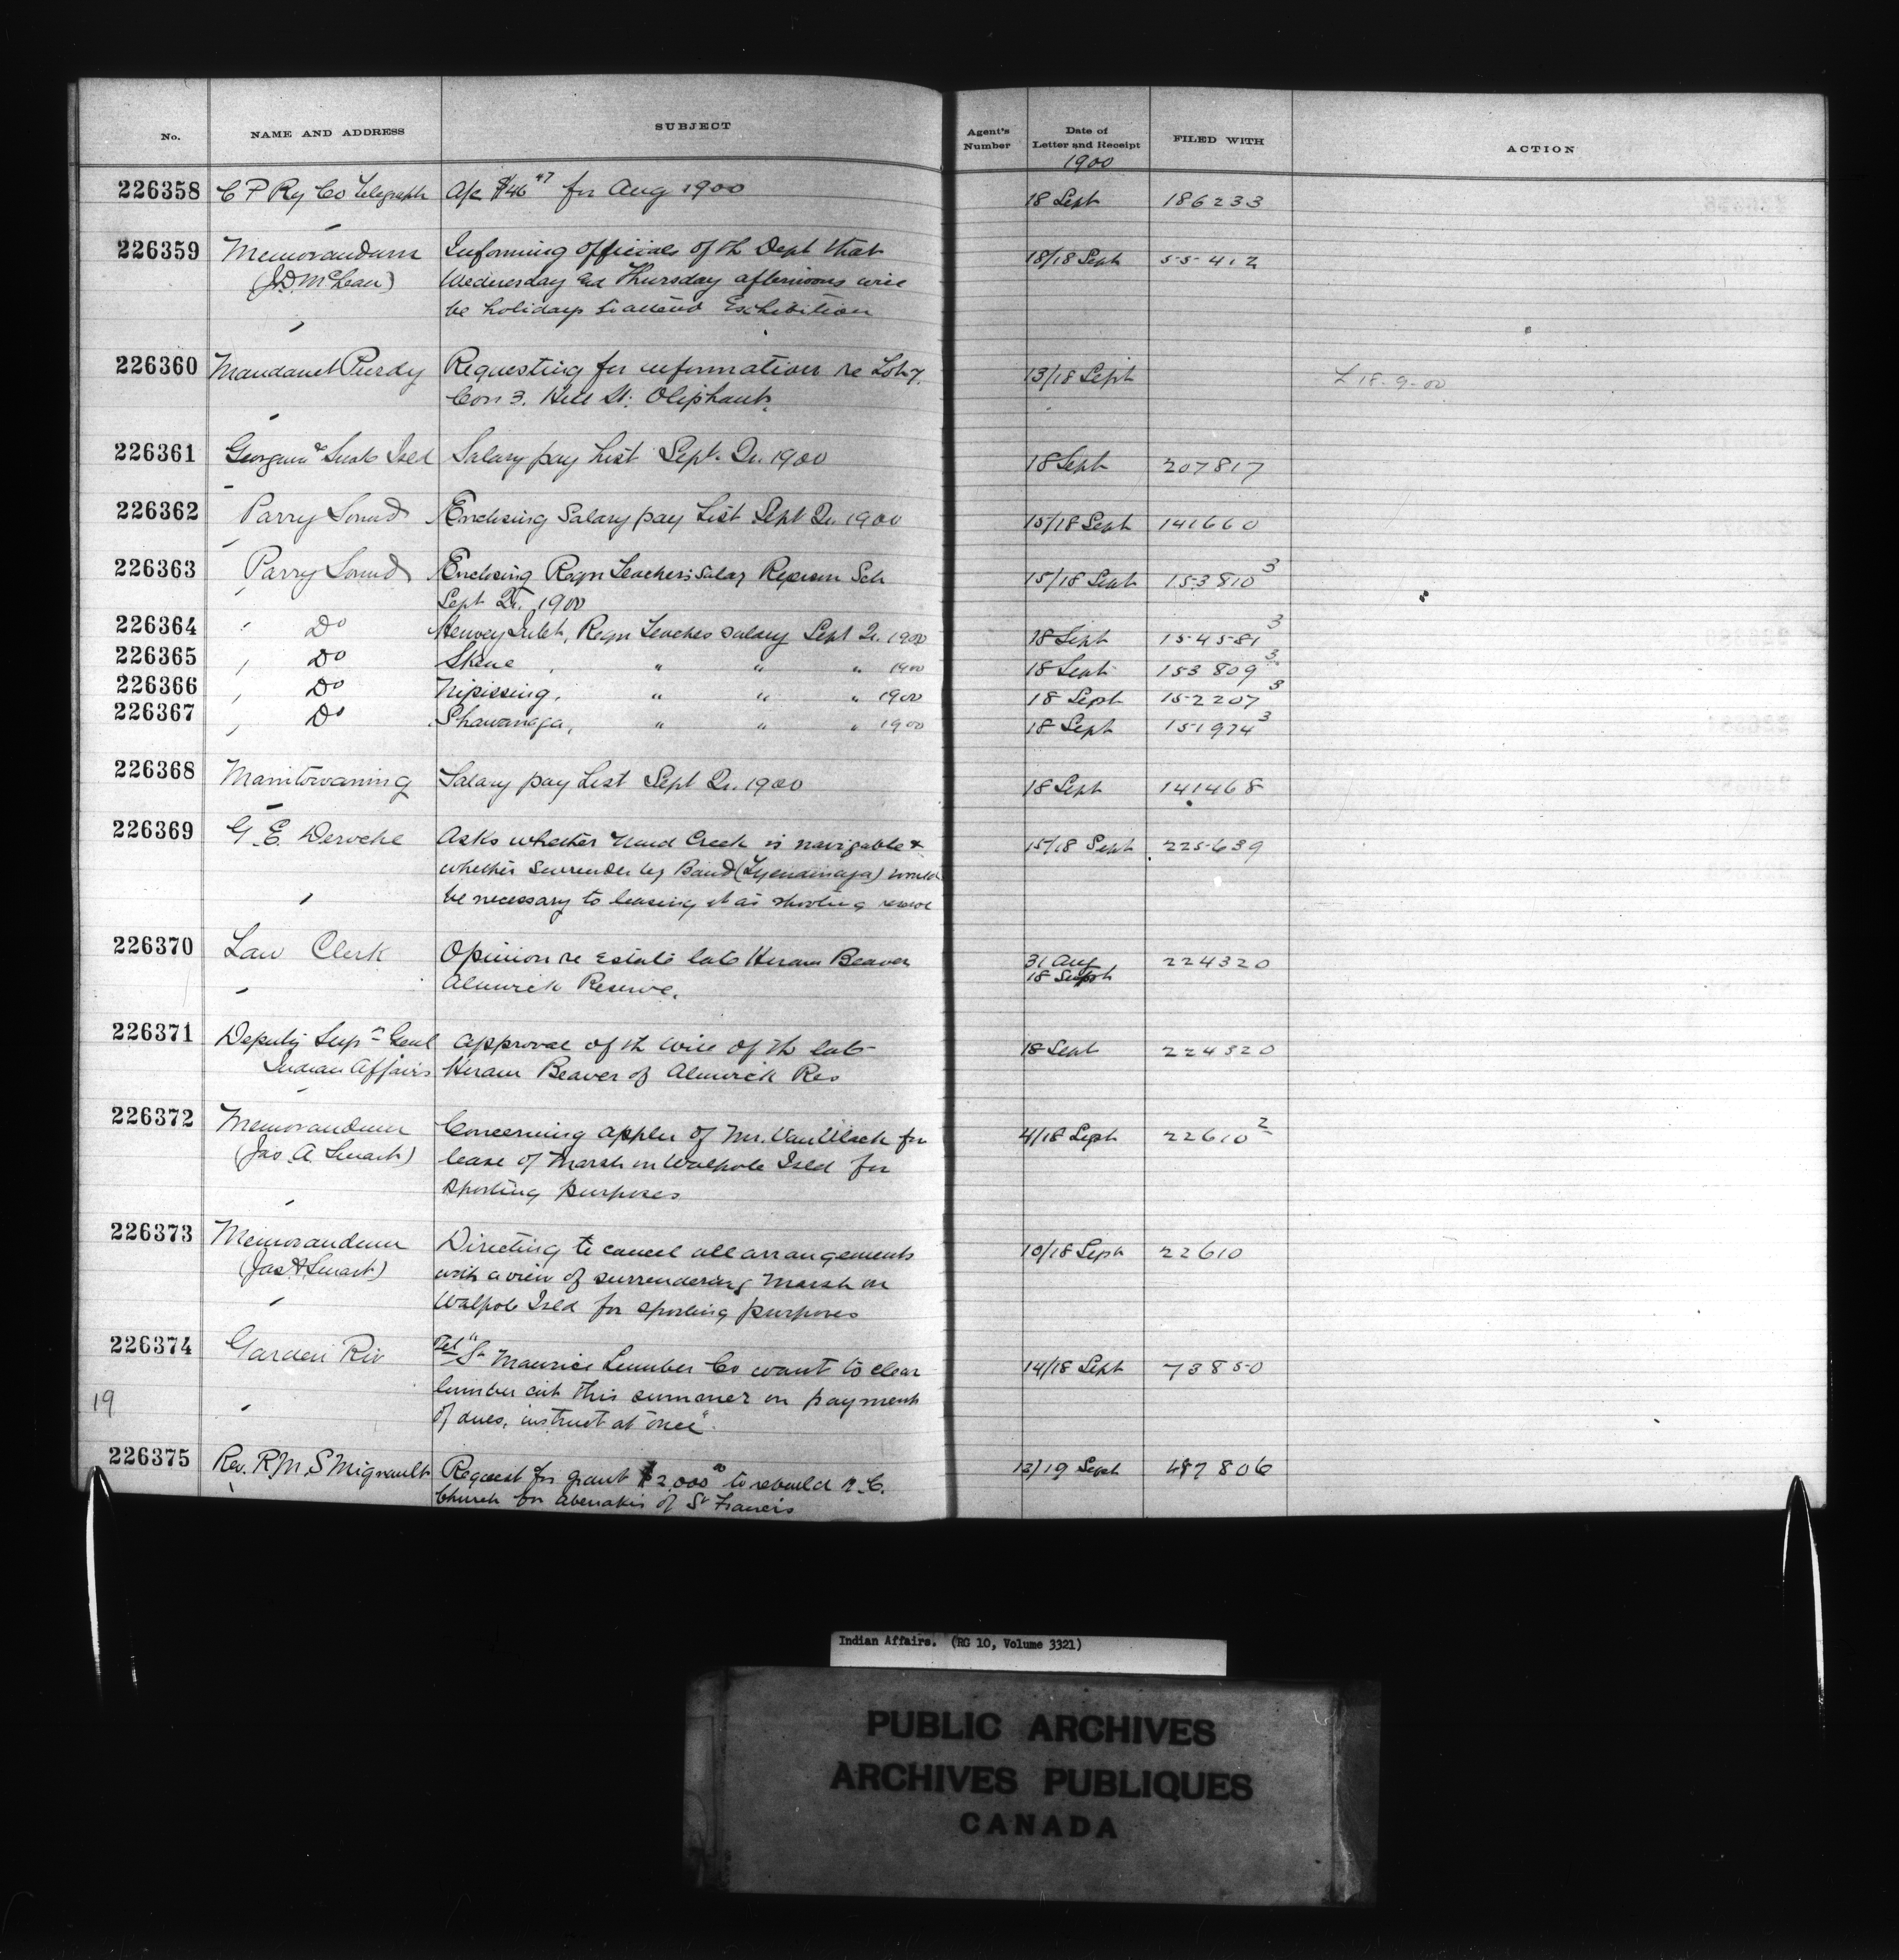 No. NAME AND ADDRESS SUBJECT Agent's Number Date of Letter and Receipt FILED WITH ACTION
1900
226358 C P Ry Co Telegraph A/c $46 47 for Aug 1900 18 Sept 186233
226359 Memorandum Informing officials of th Dept that 18/18 Sept 55412
(J.D. McLean) Wednesday and Thursday afternoons will
be holidays to attend Exhibition
226360 Purdy Requesting for information re Lot 7. 13/18 Sept L 18-9-00
Con 3. Hill St. Oliphant.
226361 Georgina & Snake Isld Salary pay List Sept. Qr. 1900 18 Sept 207817
226362 Parry Sound Enclosing Salary pay List Sept Qr. 1900 15/18 Sept 141660
226363 Parry Sound Enclosing Reqn Teachers Salary Ryerson Sch 15/18 Sept 153810 3
Sept Qr. 1900
226364 Do Henvey Inlet, Reqn Teachers Salary Sept Qr. 1900 18 Sept 154581 3
226365 Do Skene , " " " 1900 18 Sept 153809 3
226366 Do Nipissing, " " " 1900 18 Sept 152207 3
226367 Do Shawanaga, " " " 1900 18 Sept 151974 3
226368 Manitowaning Salary pay List Sept Qr. 1900 18 Sept 141468
226369 G. E. Deroche Asks whether Mud Creek is navigable & 15/18 Sept 225639
whether Surrender by Band (Tyendinaga) would
be necessary to leasing it as shooting reserve
226370 Law Clerk Opinion re Estate late Hiram Beaver 31 Aug 224320
Alnwick Reserve. 18 Sept
226371 Deputy Supt Genl approval of th will of th late 18 Sept 224320
Indian Affairs Hiram Beaver of Alnwick Res
226372 Memorandum Concerning appln of Mr. for 4/18 Sept 22610 2
(Jas. A. Smart) lease of Marsh on Walpole Isld for
sporting purposes
226373 Memorandum Directing to cancel all arrangements 10/18 Sept 22610
(Jas A Smart) with a view of surrendering Marsh on
Walpole Isld for sporting purposes
226374 Garden Riv Tel "St Maurice Lumber Co want to clear 14/18 Sept 73850
19 lumber cut this summer on payment
of dues, instruct at once".
226375 Rev. R.M.S Mignault Request for grant $2,000 00 to rebuild R.C. 12/19 Sept 487806
Church for Abenakis of St Francis
Indian Affairs. (RG 10, Volume 3321)
PUBLIC ARCHIVES
ARCHIVES PUBLIQUES
CANADA